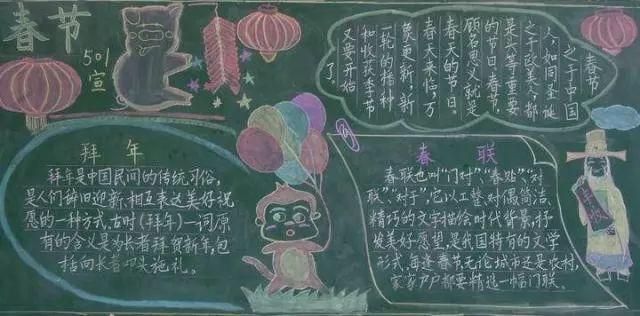 春节
501
宣
春节
之于中国
人,如同圣诞
之于欧美人,都
是头等重要
的节日。春节,
顾名思义就是
春天的节日。
春天来临,万
象更新,新
一轮的播种
和收获季节
又要开始
了。
拜年
拜年是中国民间的传统习俗,
是人们辞旧迎新、相互表达美好祝
愿的一种方式。古时(拜年)一词原
有的含义是为长者拜贺新年,包
括向长者叩头施礼。
春联
春联也叫“门对”、“春贴”、“对
联”、“对子”,它以工整、对偶、简洁、
精巧的文字描绘时代背景,抒
发美好愿望,是我国特有的文学
形式。每逢春节,无论城市还是农村,
家家户户都要精选一幅门联。